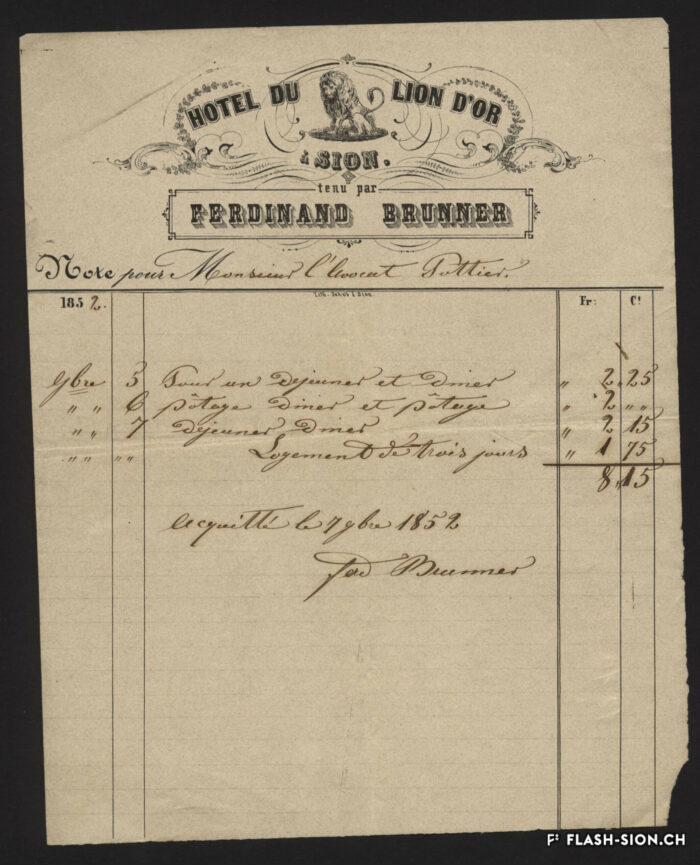 HOTEL DU LION D'OR
à SION.
tenu par
FERDINAND BRUNNER
Note pour Monsieur l'Avocat Pottier.
1852. Fr: Ct
9bre 5 Pour un dejeuner et diner " 2 " 25
" " 6 pôtage diner et pôtage " 2 " "
" " 7 dejeuner diner " 2 15
" " " " Logement de trois jours " 1 75
8 " 15
acquitté le 7 9bre 1852
ferd Brunner
FLASH-SION.CH